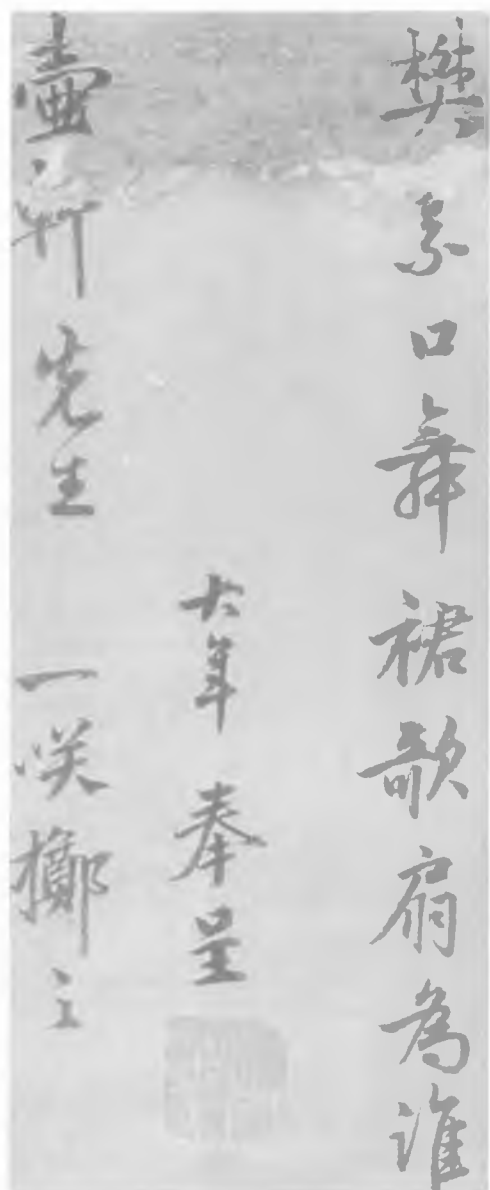 樊素口舞裙歌扇為誰
大年奉呈
壷軒先生 一咲擲之